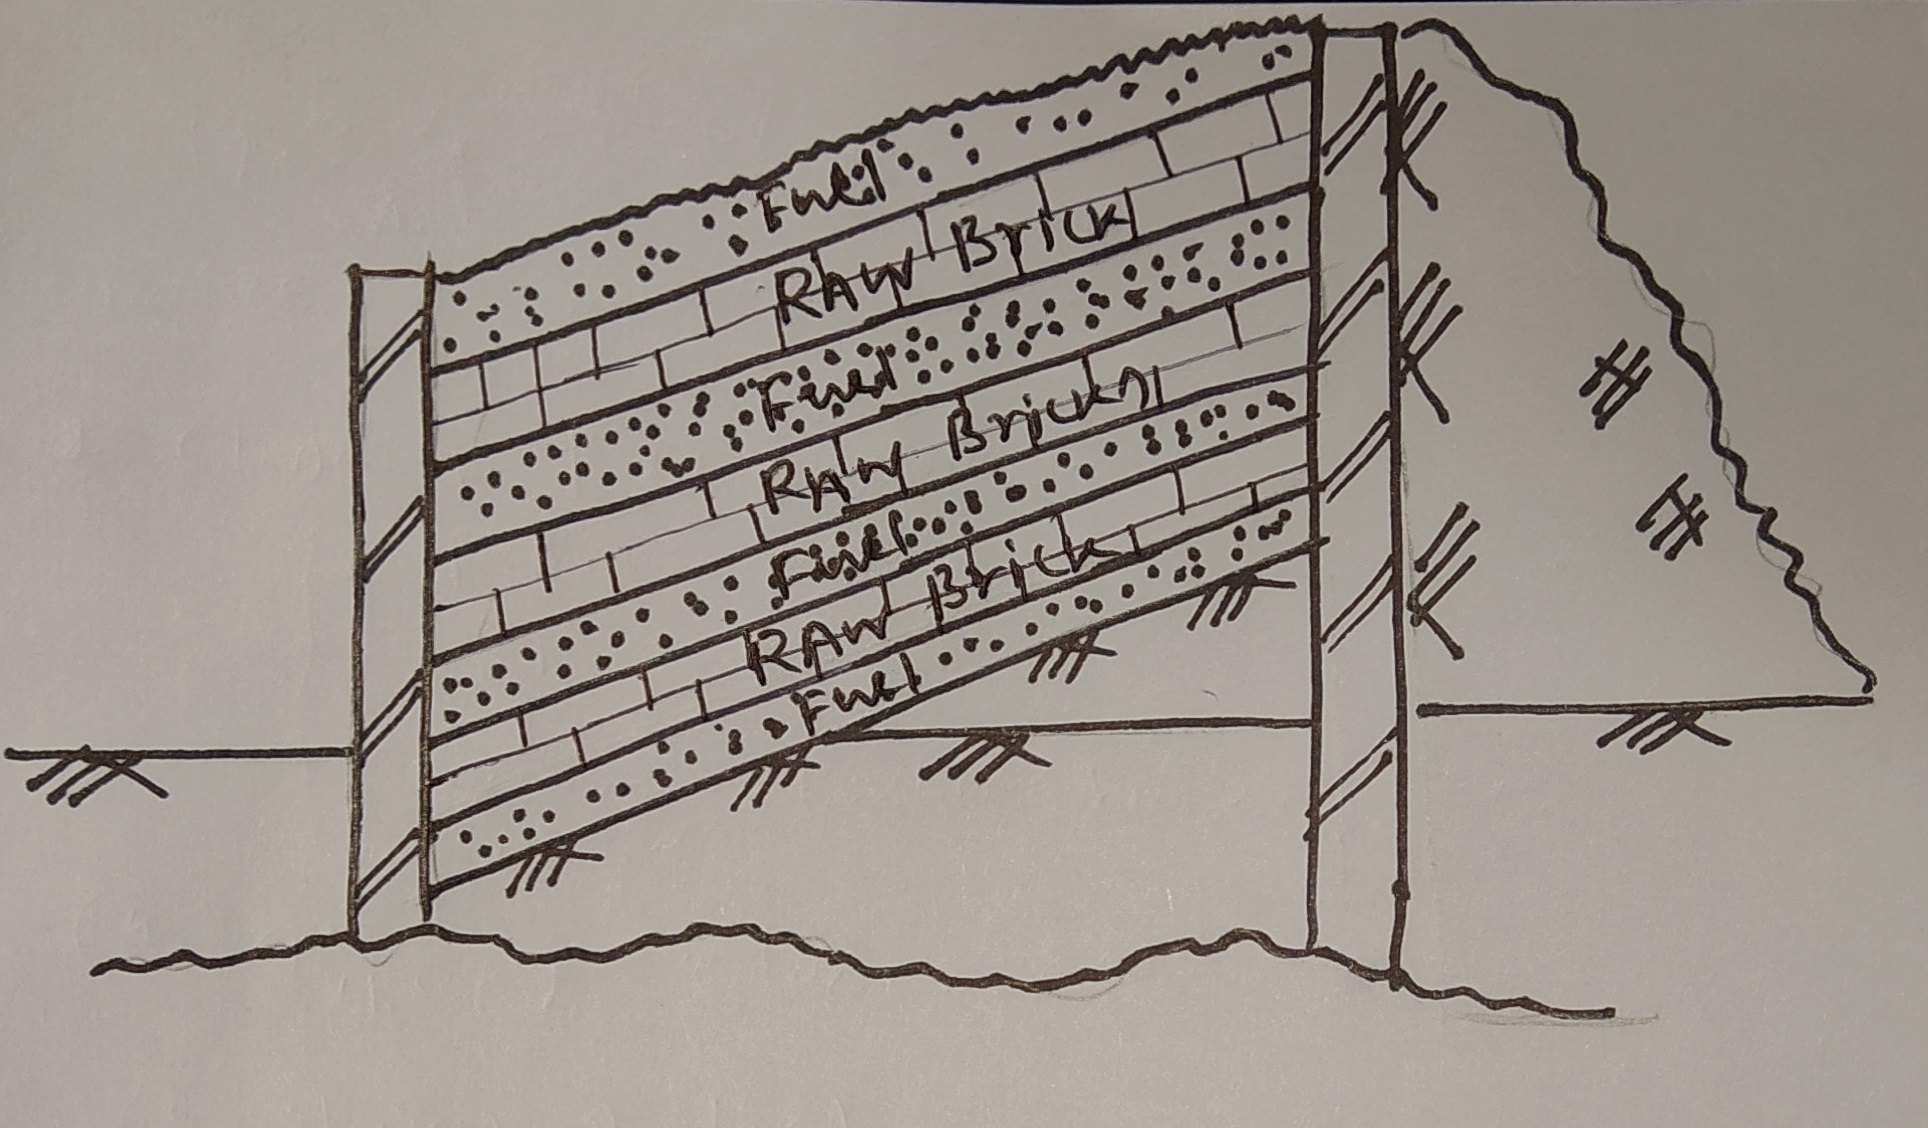 Fuel
RAW Brick
Fuel
RAW Bricks
Fuel
RAW Brick
Fuel